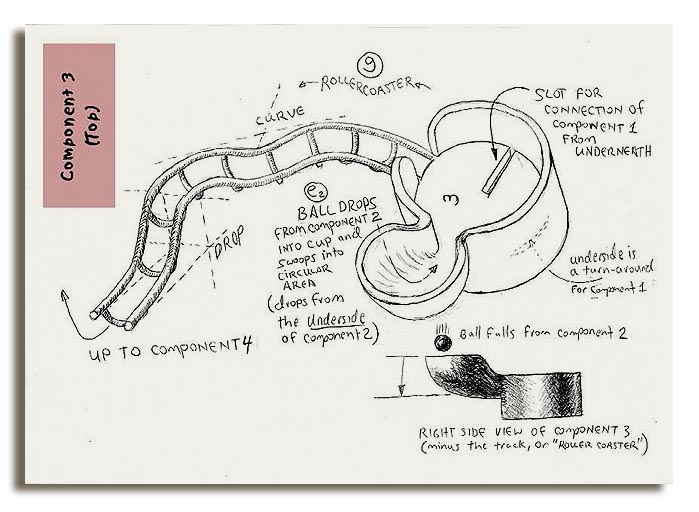 Component 3
(Top)
g
ROLLERCOASTER
CURVE
SLOT FOR
CONNECTION OF
COMPONENT 1
FROM
UNDERNEATH
3
e2
BALL DROPS
FROM COMPONENT 2
INTO CUP and
SWOOPS INTO
CIRCULAR
AREA
(drops from
the Underside
of component 2)
DROP
UP TO COMPONENT 4
underside is
a turn-around
For Component 1
Ball Falls from component 2
RIGHT SIDE VIEW OF COMPONENT 3
(minus the track, or "ROLLER COASTER")